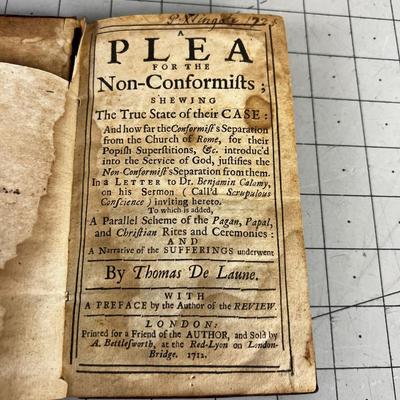 A
PLEA
FOR THE
Non-Conformists;
SHEWING
The True State of their CASE:
And how far the Conformist's Separation
from the Church of Rome, for their
Popish Superstitions, &c. introduc'd
into the Service of God, justifies the
Non-Conformist's Separation from them.
In a LETTER to Dr. Benjamin Calamy,
on his Sermon (Call'd Scrupulous
Conscience) inviting hereto.
To which is added,
A Parallel Scheme of the Pagan, Papal,
and Christian Rites and Ceremonies:
AND
A Narrative of the SUFFERINGS underwent
By Thomas De Laune.
WITH
A PREFACE by the Author of the REVIEW.
LONDON:
Printed for a Friend of the AUTHOR, and Sold by
A. Bettlesworth, at the Red-Lyon on London-
Bridge. 1712.